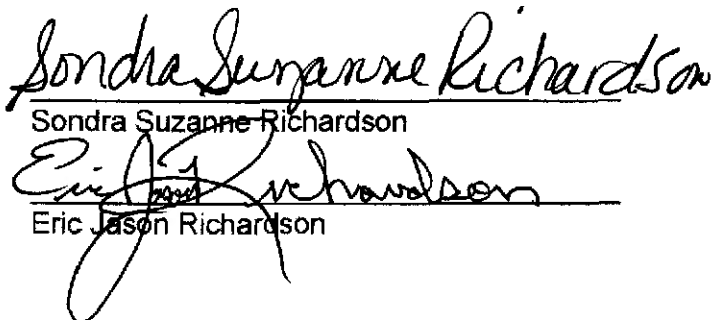 Sondra Suzanne Richardson
Sondra Suzanne Richardson
Eric Jason Richardson
Eric Jason Richardson